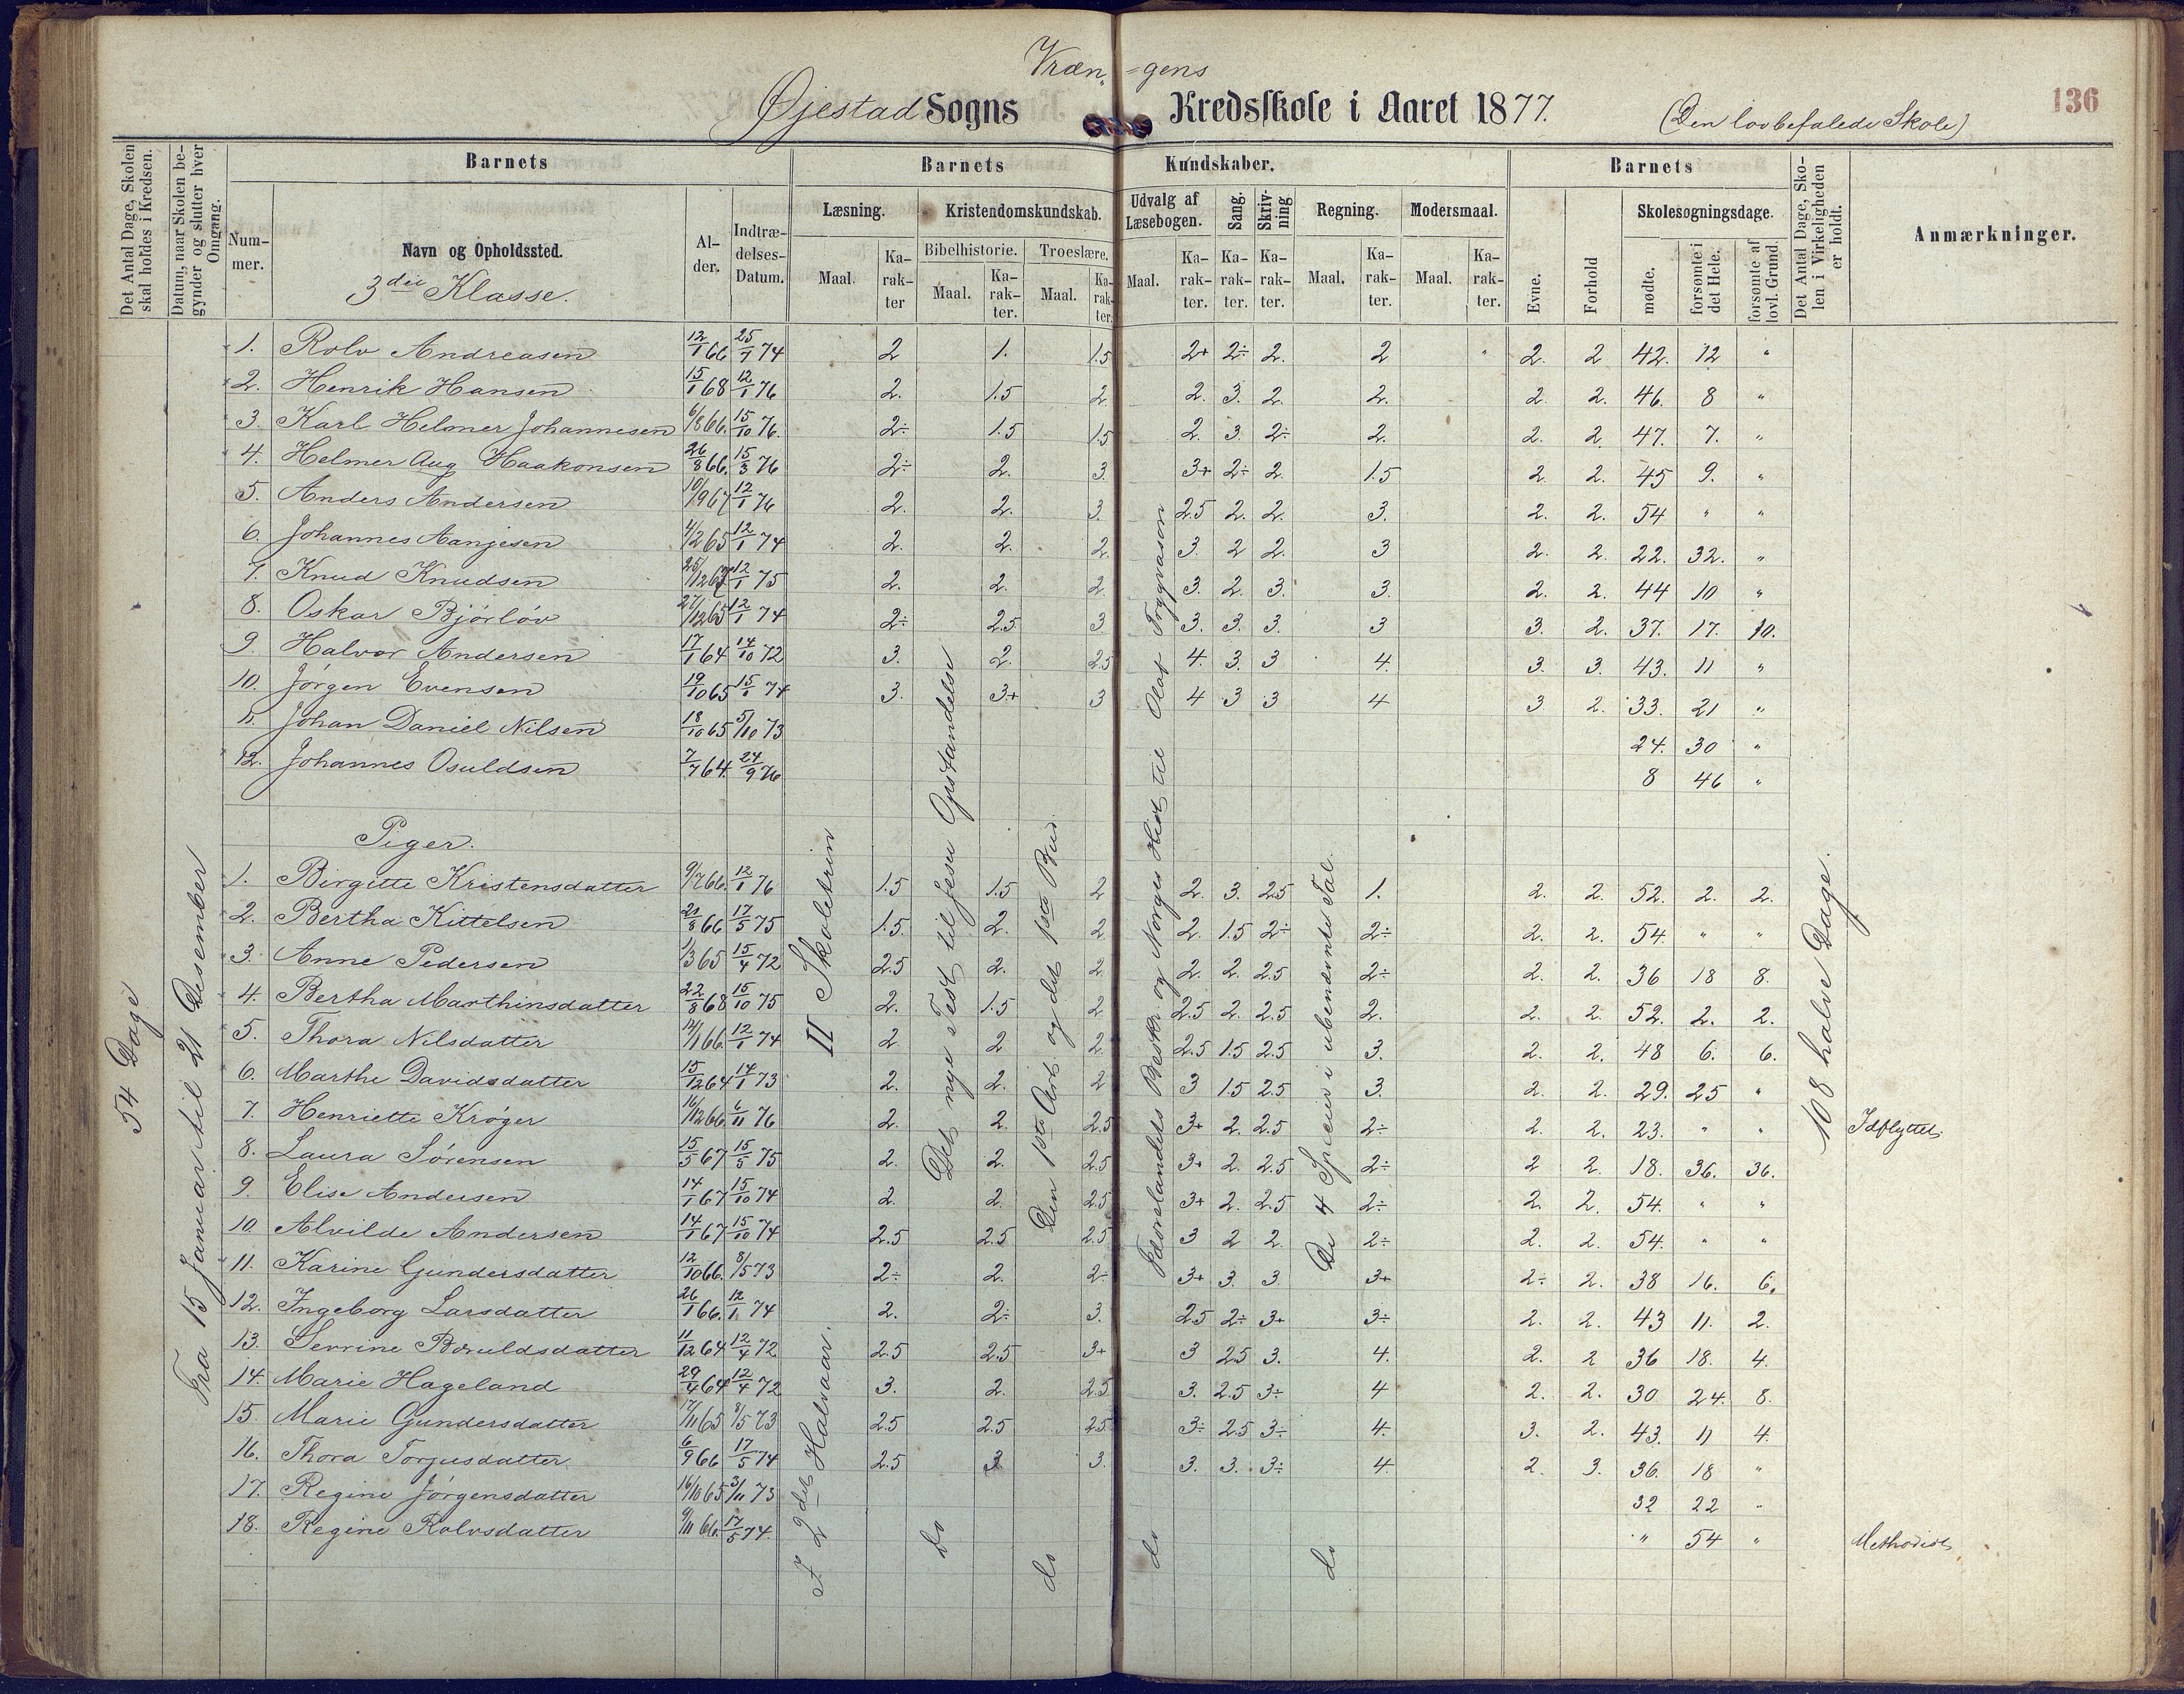 Vræn-gens
Øjestad Sogns Kredsskole i Aaret 1877. (Den lovbefalede Skole) 136
Det Antal Dage, Skolen skal holdes i Kredsen.
Datum, naar Skolen begynder og slutter hver Omgang.
Barnets
Barnets Kundskaber.
Barnets
Det Antal Dage, Skolen i Virkeligheden er holdt.
Anmærkninger.
Nummer.
Navn og Opholdssted.
3die Klasse.
Alder.
Indtrædelses-Datum.
Læsning. Kristendomskundskab. Udvalg af Læsebogen. Sang. Skrivning Regning. Modersmaal.
Bibelhistorie. Troeslære.
Maal. Karakter Maal. Karakter. Maal. Karakter. Maal. Karakter. Karakter. Karakter. Maal. Karakter. Maal. Karakter.
Evne. Forhold Skolesøgningsdage. mødte. forsømte i det Hele. forsømte af lovl. Grund.
1. Rolv Andreasen 12/1 66 25/1 74 2 1. 1.5 2+ 2÷ 2. 2 2. 2 42. 12 "
2. Henrik Hansen 15/1 68 12/1 76 2. 1.5 2 2. 3. 2. 2. 2. 2. 46. 8 "
3. Karl Helmer Johannesen 6/8 66. 15/10 76. 2÷ 1.5 1.5 2. 3. 2÷ 2. 2. 2. 47. 7. "
4. Helmer Aug Haakonsen 26/8 66. 15/3 76 2÷ 2. 3. 3+ 2÷ 2. 1.5 2. 2. 45 9. "
5. Anders Andersen 10/9 67 12/1 76 2. 2. 3. 2.5 2. 2. 3. 2. 2. 54 " "
6. Johannes Aanjesen 4/2 65 12/1 74 2. 2. 2. 3. 2 2. 3 2. 2. 22. 32. "
7. Knud Knudsen 12/1 75 2. 2. 2. 3. 2. 3. 3. 2. 2. 44 10 "
8. Oskar Bjørløv 27/12 65 12/1 74 2÷ 2.5 3. 3. 3. 3. 3 3. 2. 37. 17. 10.
9. Halvor Andersen 17/1 64 14/10 72 3. 2. 2.5 4. 3. 3 4. 3. 3. 43. 11 "
10. Jørgen Evensen 19/10 65 15/1 74 3. 3+ 3 4 3 3 4 3 2. 33. 21 "
11. Johan Daniel Nilsen 18/10 65 5/10 73 24. 30 "
12. Johannes Osuldsen 7/7 64. 24/9 76 8 46 "
Piger.
1. Birgitte Kristensdatter 9/7 66. 12/1 76 1.5 1.5 2 2. 3. 2.5 1. 2. 2. 52. 2. 2.
2. Bertha Kittelsen 21/8 66 17/5 75 1.5. 2. 2 2. 1.5 2÷ 2÷ 2. 2. 54. " "
3. Anne Pedersen 1/3 65 15/4 72 2.5 2. 2. 2. 2. 2.5 2÷ 2. 2. 36 18 8.
4. Bertha Marthinsdatter 22/8 68 15/10 75 2. 1.5 2 2.5 2. 2.5 2. 2. 2. 52. 2. 2.
5. Thora Nilsdatter 14/1 66. 12/1 74 2. 2 2. 2.5 1.5 2.5 3. 2. 2. 48 6. 6.
6. Marthe Davidsdatter 15/12 64 14/1 73 2. 2. 2 3 1.5 2.5 3. 2. 2. 29. 25 "
7. Henriette Krøger 16/12 66. 6/11 76 2. 2. 2.5 3+ 2. 2.5 2÷ 2. 2. 23. " " Udflyttet.
8. Laura Sørensen 15/5 67 15/5 75 2. 2. 2.5 3+ 2. 2.5 2÷ 2 2. 18. 36. 36.
9. Elise Andersen 14/1 67 15/10 74 2. 2. 2.5 3+ 2. 2.5 2÷ 2. 2. 54. " "
10. Alvilde Andersen 14/1 67 15/10 74 2.5 2.5 2.5 3 2 2. 2÷ 2. 2. 54. " "
11. Karine Gundersdatter 12/10 66. 8/5 73 2÷ 2. 2÷ 3+ 3. 3. 3+ 2÷ 2. 38 16. 6.
12. Ingeborg Larsdatter 26/1 66. 12/1 74 2. 2÷ 3. 2.5 2÷ 3+ 3÷ 2. 2. 43 11. 2.
13. Serrine Boruldsdatter 11/12 64 12/4 72 2.5 2.5 3+ 3 2.5 3. 4. 2. 2 36 18. 4.
14. Marie Hageland 29/4 64 12/4 72 3. 2. 2.5 3. 2.5 3÷ 4 2. 2. 30 24. 8.
15. Marie Gundersdatter 17/11 65 8/5 73 2.5 2.5 2.5 3÷ 2.5 3÷ 4. 3. 2. 43. 11 4.
16. Thora Torjusdatter 6/9 66 17/5 74 2.5 3 3. 3. 3. 3÷ 4. 2. 3. 36. 18 "
17. Regine Jørgensdatter 16/10 65 3/11 73 32 22 "
18. Regine Rolvsdatter 9/11 66. 17/5 74. " 54 " Methodist
54 Dage
Fra 15 Januar til 21 Desember
I 2det Halvaar. II Skoletrin
Det nye Test til Jesu Opstandelse
do
Den 1ste Art og det 1ste Bud.
do
Fædrelandets Beskr. og Norges Hist til Olaf Trygvason
do
De 4 Specier i ubenævnte Tal.
do
108 halve Dage.